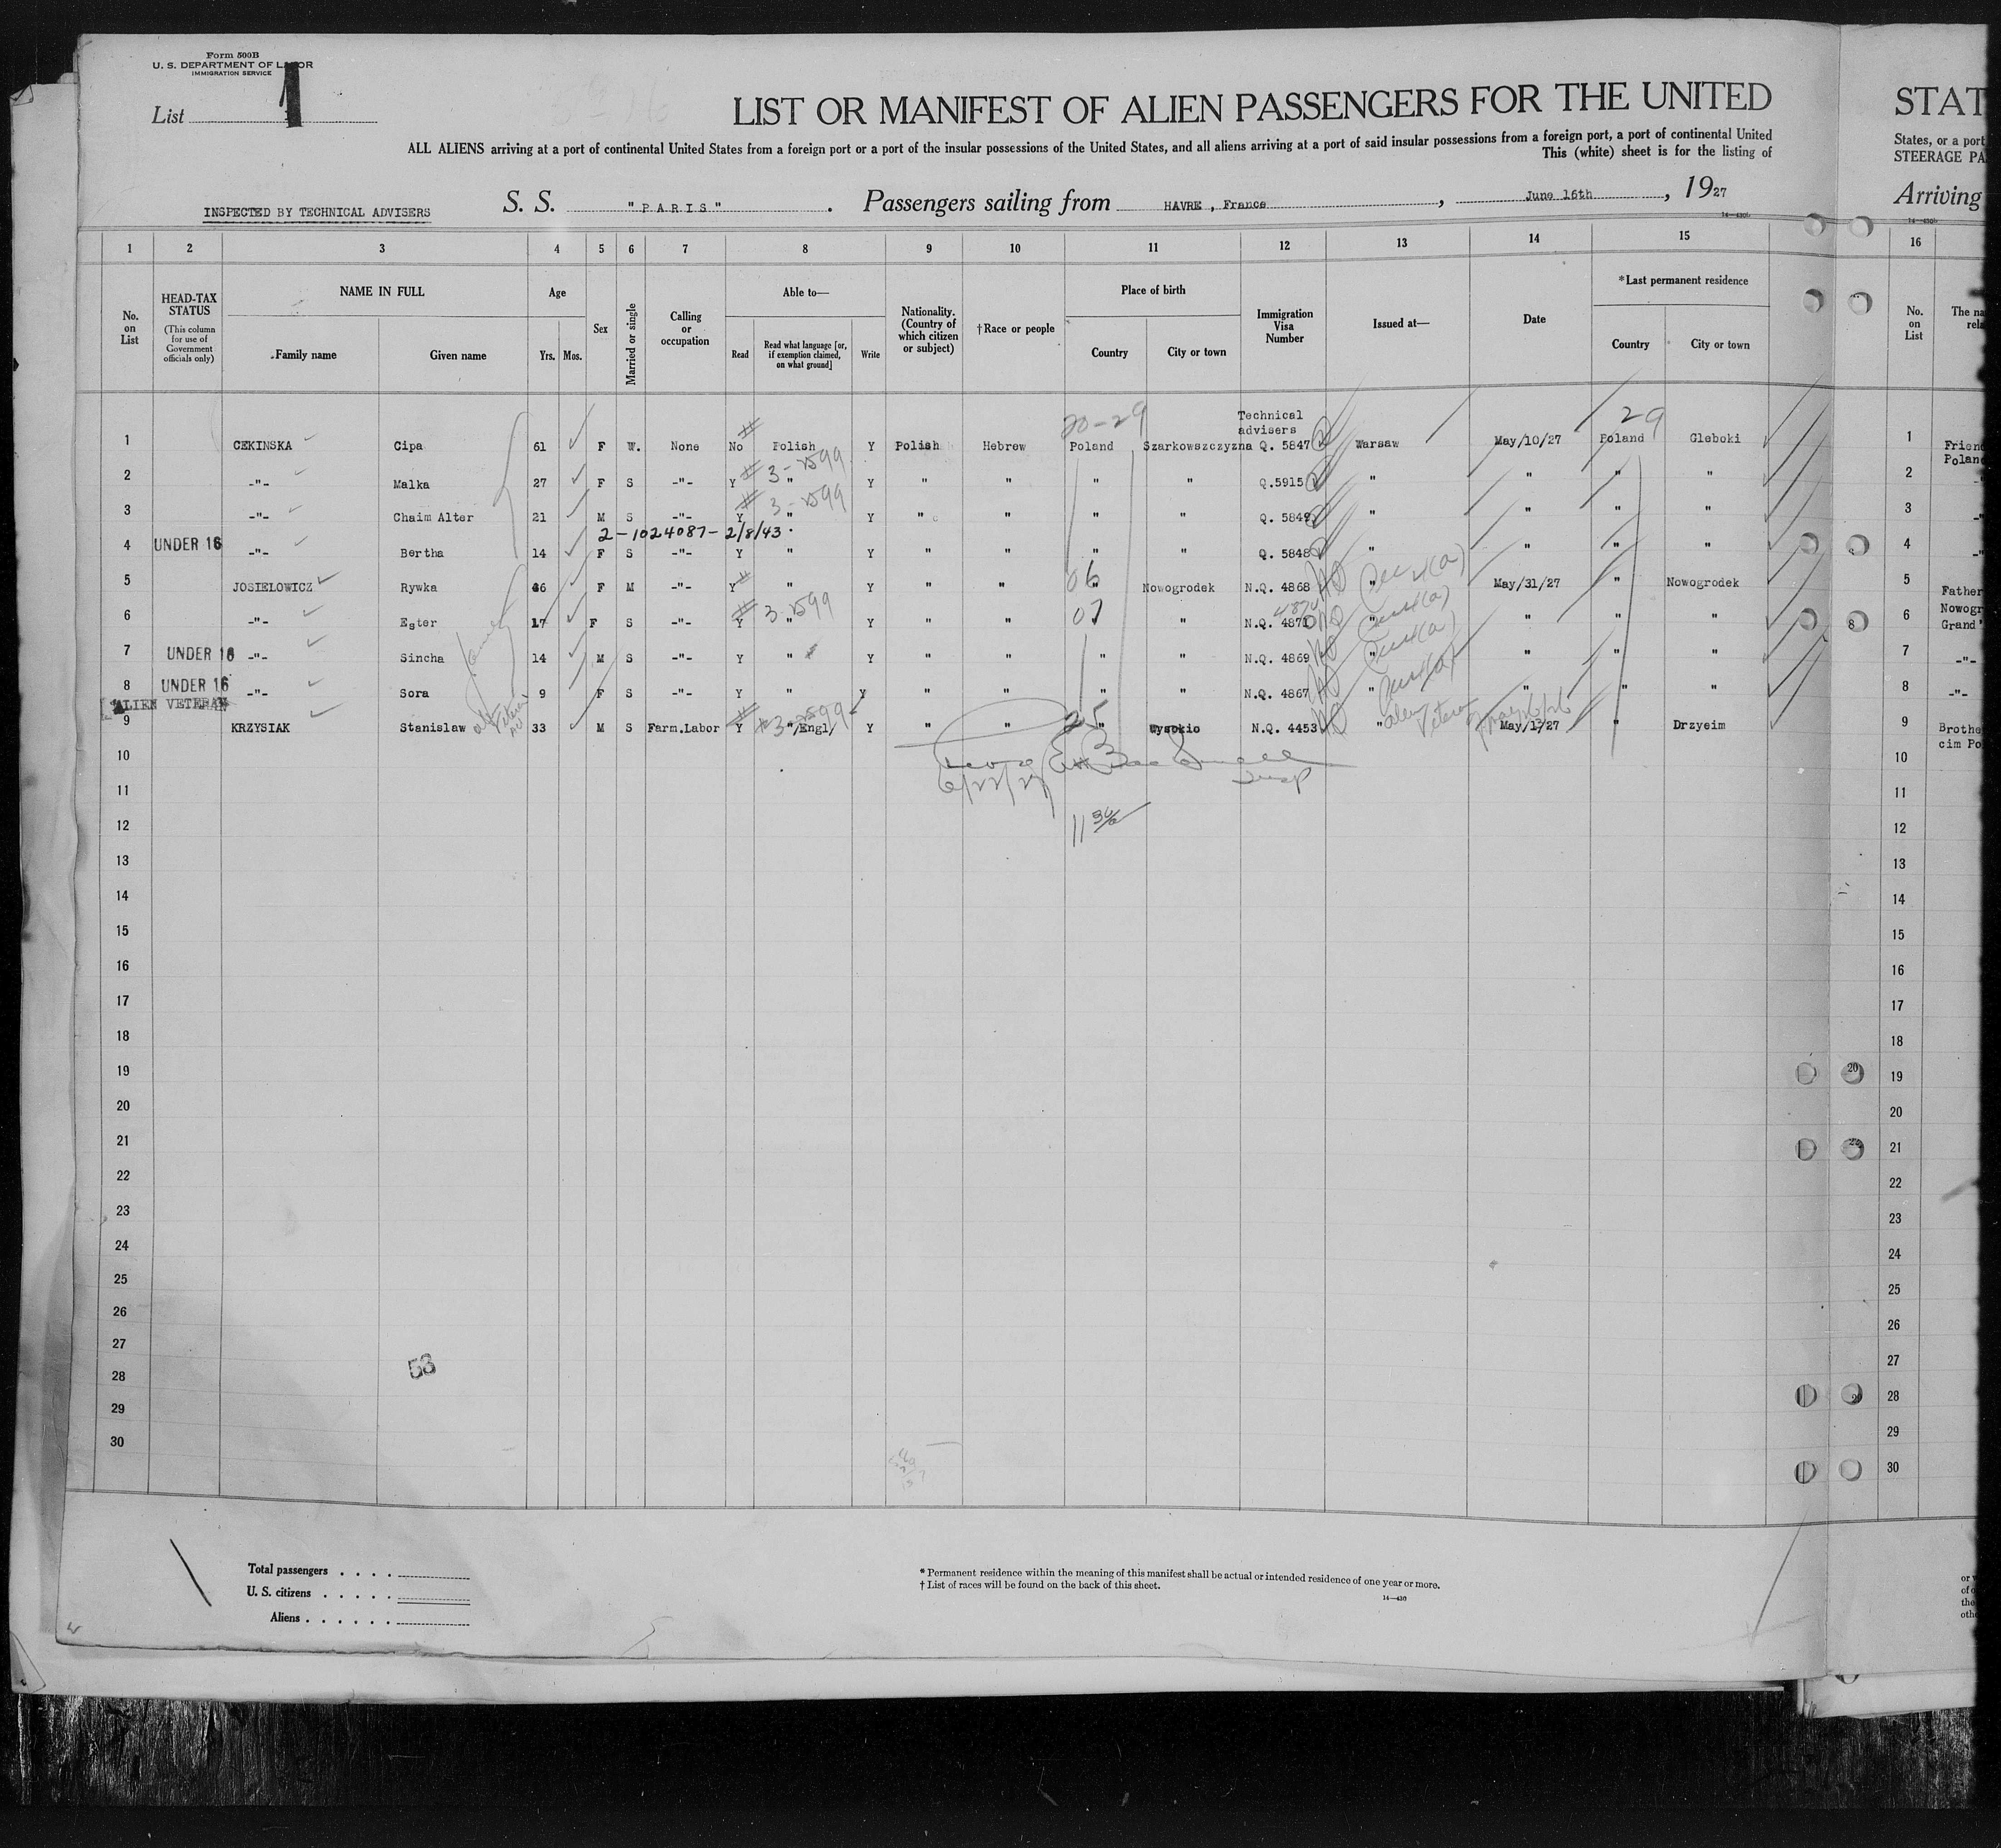 Form 500B
U. S. DEPARTMENT OF LABOR
IMMIGRATION SERVICE
List 1
LIST OR MANIFEST OF ALIEN PASSENGERS FOR THE UNITED
STAT
ALL ALIENS arriving at a port of continental United States from a foreign port or a port of the insular possessions of the United States, and all aliens arriving at a port of said insular possessions from a foreign port, a port of continental United
States, or a port
This (white) sheet is for the listing of
STEERAGE PA
INSPECTED BY TECHNICAL ADVISERS
S. S. " PARIS " . Passengers sailing from HAVRE , France , June 16th , 1927
Arriving
14—430b
1 2 3 4 5 6 7 8 9 10 11 12 13 14 15 16
No. on List
HEAD-TAX STATUS
(This column for use of Government officials only)
NAME IN FULL
Family name
Given name
Age
Yrs. Mos.
Sex
Married or single
Calling or occupation
Able to—
Read
Read what language [or, if exemption claimed, on what ground]
Write
Nationality. (Country of which citizen or subject)
†Race or people
Place of birth
Country
City or town
Immigration Visa Number
Issued at—
Date
*Last permanent residence
Country
City or town
No. on List
The na
rela
20-29
29
Technical advisers
1 CEKINSKA Cipa 61 F W. None No Polish Y Polish Hebrew Poland Szarkowszczyzna Q. 5847 Warsaw May/10/27 Poland Gleboki 1 Frien
Polan
3-2599
2 -"- Malka 27 F S -"- Y " Y " " " " Q.5915 " " " " 2
3-2599
3 -"- Chaim Alter 21 M S -"- Y " Y " " " " Q. 5849 " " " " 3
2-1024087-2/8/43.
4 UNDER 16 -"- Bertha 14 F S -"- Y " Y " " " " Q. 5848 " " " " 4
06
5 JOSIELOWICZ Rywka 46 F M -"- Y " Y " " " Nowogrodek N.Q. 4868 " May/31/27 " Nowogrodek 5 Father
3-2599 07 4870
6 -"- Ester 17 F S -"- Y " Y " " " N.Q. 4871 " " " " 6 Nowogr
Grand'
7 UNDER 16 -"- Sincha 14 M S -"- Y " Y " " " " N.Q. 4869 " " " " 7 -"-
8 UNDER 16 -"- Sora 9 F S -"- Y " Y " " " " N.Q. 4867 " " " " 8 -"-
ALIEN VETERAN
3-2599 25 alien Veteran
9 KRZYSIAK Stanislaw 33 M S Farm.Labor Y "/Engl/ Y " " " Wysokio N.Q. 4453 " May/1/27 " Drzyeim 9 Brothe
cim Po
10 10
6/22/27
Insp
11 11
12 12
13 13
14 14
15 15
16 16
17 17
18 18
19 19
20 20
21 21
22 22
23 23
24 24
25 25
26 26
27 27
53
28 28
29 29
30 30
Total passengers . . . .
U. S. citizens . . . . .
Aliens . . . . . .
* Permanent residence within the meaning of this manifest shall be actual or intended residence of one year or more.
† List of races will be found on the back of this sheet.
14—430